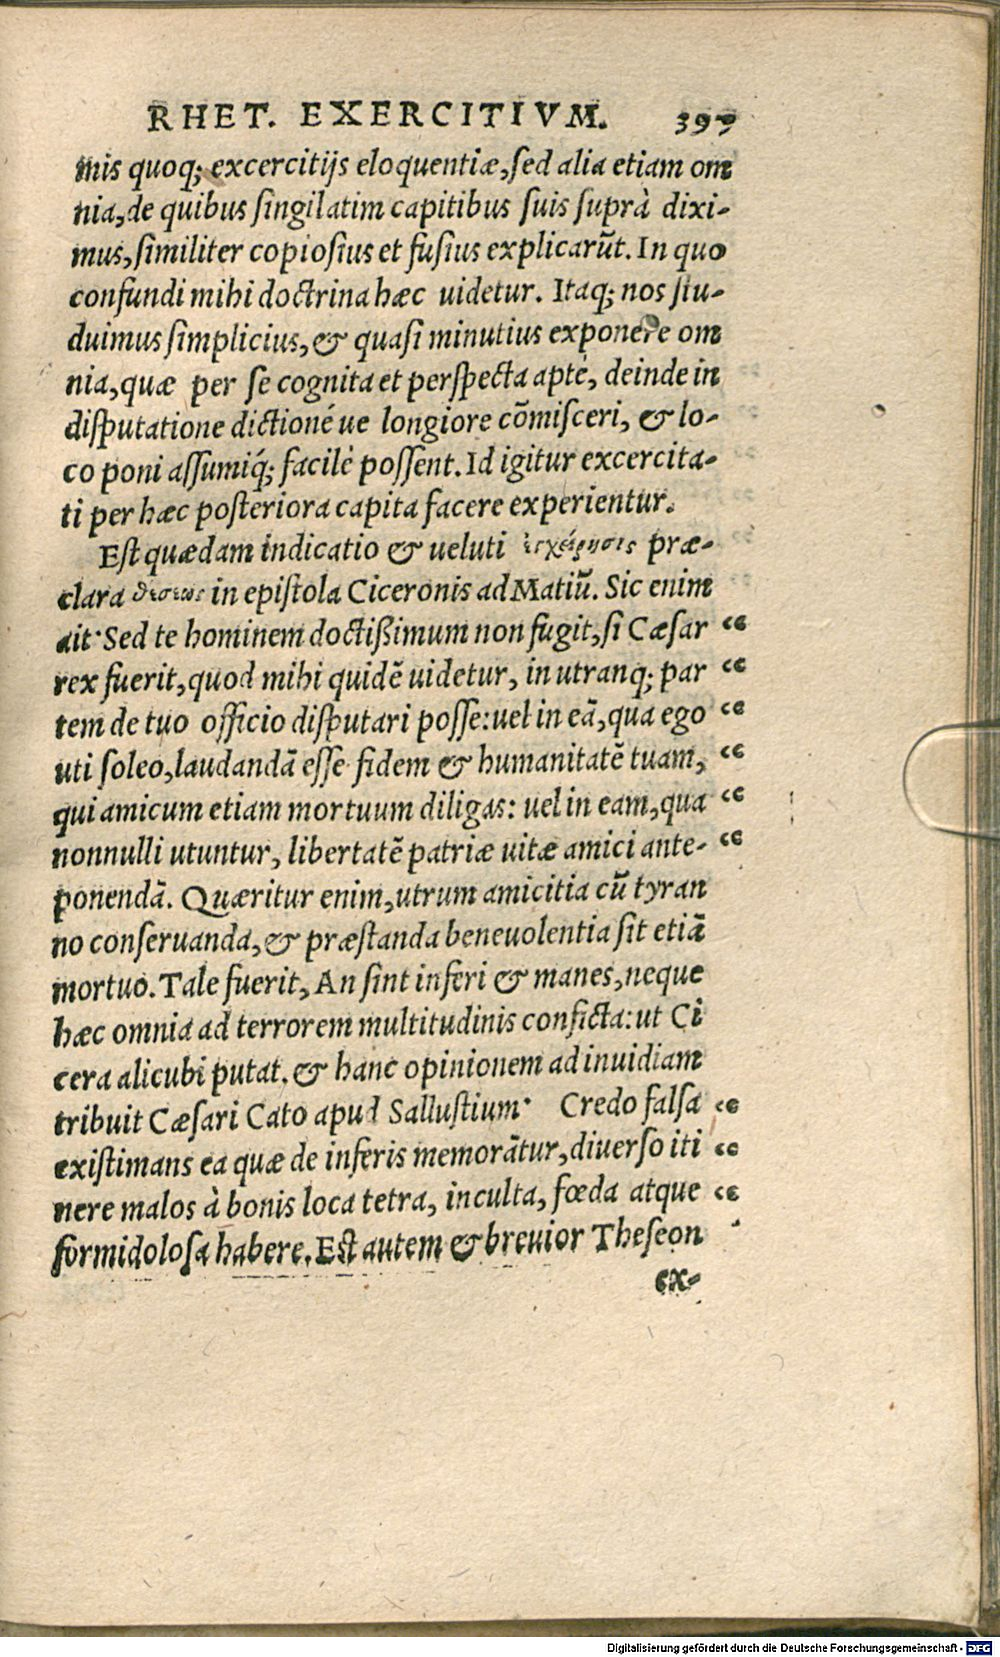 RHET. EXERCITIVM. 399
mis quoq; excercitijs eloquentiæ, sed alia etiam om
nia, de quibus singilatim capitibus suis suprà dixi-
mus, similiter copiosius et fusius explicarũt. In quo
confundi mihi doctrina hæc uidetur. Itaq; nos stu-
duimus simplicius, & quasi minutius exponere om
nia, quæ per se cognita et perspecta aptè, deinde in
disputatione dictioné ue longiore cõmisceri, & lo-
co poni assumiq́; facilè possent. Id igitur excercita-
ti per hæc posteriora capita facere experientur.
Est quædam indicatio & ueluti præ-
clara in epistola Ciceronis ad Matiũ. Sic enim
ait· Sed te hominem doctißimum non fugit, si Cæsar “
rex fuerit, quod mihi quidẽ uidetur, in utranq; par “
tem de tuo officio disputari posse: uel in eã, qua ego “
uti soleo, laudandã esse fidem & humanitatẽ tuam, “
qui amicum etiam mortuum diligas: uel in eam, qua “
nonnulli utuntur, libertatẽ patriæ uitæ amici ante- “
ponendã. Quæritur enim, utrum amicitia cũ tyran
no conseruanda, & præstanda beneuolentia sit etiã
mortuo. Tale fuerit, An sint inferi & manes, neque
hæc omnia ad terrorem multitudinis conficta: ut Ci
cera alicubi putat. & hanc opinionem ad inuidiam
tribuit Cæsari Cato apud Sallustium· Credo falsa “
existimans ea quæ de inferis memorãtur, diuerso iti “
nere malos à bonis loca tetra, inculta, fœda atque “
formidolosa habere. Est autem & breuior Theseon
ex-
Digitalisierung gefördert durch die Deutsche Forschungsgemeinschaft - DFG